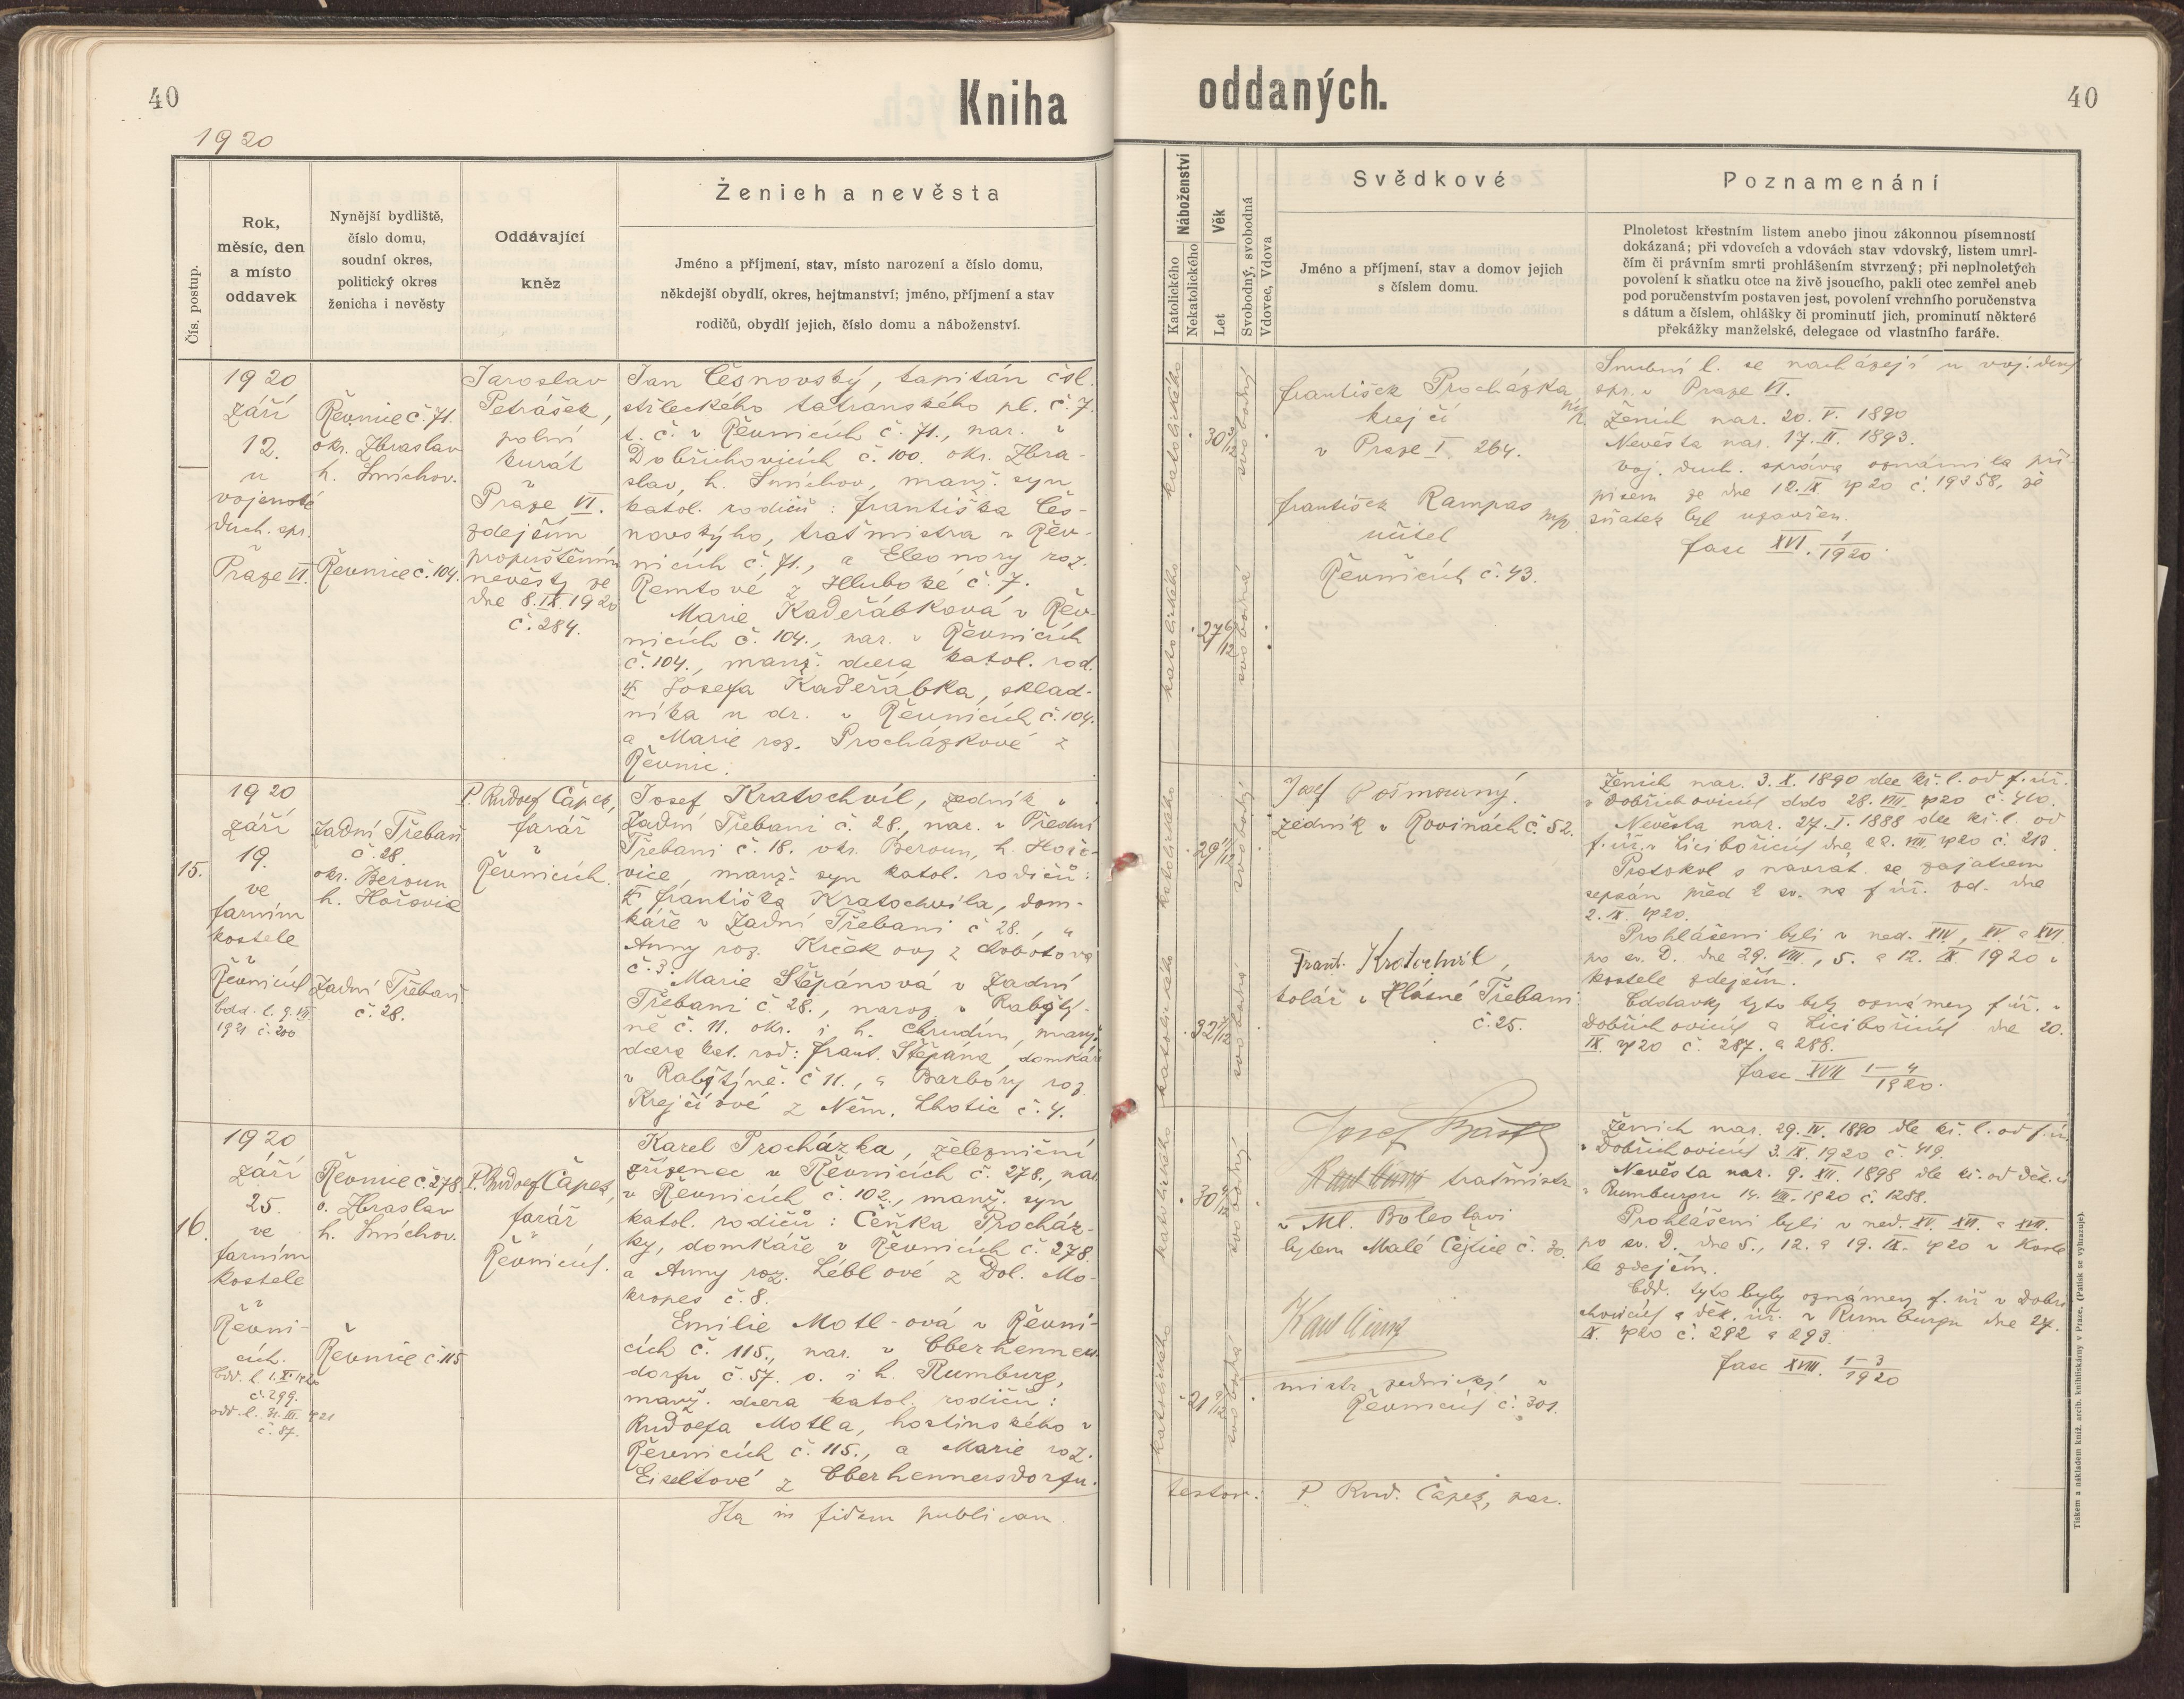 40
Kniha
oddaných.
40
1920
Čís. postup.
Rok,
měsíc, den
a místo
oddavek
Nynější bydliště,
číslo domu,
soudní okres,
politický okres
ženicha i nevěsty
Oddávající
kněz
Ženich a nevěsta
Jméno a příjmení, stav, místo narození a číslo domu,
někdejší obydlí, okres, hejtmanství; jméno, příjmení a stav
rodičů, obydlí jejich, číslo domu a náboženství.
Náboženství
Katolického
Nekatolického
Věk
Let
Svobodný, svobodná
Vdovec, Vdova
Svědkové
Jméno a příjmení, stav a domov jejich
s číslem domu.
Poznamenání
Plnoletost křestním listem anebo jinou zákonnou písemností
dokázaná; při vdovcích a vdovách stav vdovský, listem umrl-
čím či právním smrti prohlášením stvrzený; při neplnoletých
povolení k sňatku otce na živě jsoucího, pakli otec zemřel aneb
pod poručenstvím postaven jest, povolení vrchního poručenstva
s dátum a číslem, ohlášky či prominutí jich, prominutí některé
překážky manželské, delegace od vlastního faráře.
1920
září
12.
u
vojenské
duch. spr.
v
Praze VI.
Řevnice č. 71.
okr. Zbraslav
h. Smíchov.
Řevnice č. 104.
Jaroslav
Petrášek,
polní
kurát
v
Praze VI.
zdejším
propuštěním
nevěsty ze
dne 8. IX. 1920
č. 284.
Jan Česnovský, kapitán čsl.
střeleckého tatranského pl. č. 7.
t. č. v Řevnicích č. 71., nar. v
Dobřichovicích č. 100. okr. Zbra-
slav, h. Smíchov, manž. syn
katol. rodičů: Františka Čes-
novského, traťmistra v Řev-
nicích č. 71., a Eleonory roz.
Remtové z Hluboké č. 7.
Marie Kadeřábková v Řev-
nicích č. 104., nar. v Řevnicích
č. 104., manž. dcera katol. rod.
Josefa Kadeřábka, sklad-
níka u dr. v Řevnicích č. 104.
a Marie roz. Procházkové z
Řevnic.
katolického
30
svobodný
katolického
27 6/12
svobodná
František Procházka mp.
krejčí
v Praze I. 264.
František Rampas mp
učitel
Řevnicích č. 43.
Snubní l. se nacházejí u voj. duch.
spr. v Praze VI.
Ženich nar. 20. V. 1890
Nevěsta nar. 17. II. 1893.
Voj. duch. správa oznámila pří-
pisem ze dne 12. IX 1920 č. 19358, že
sňatek byl uzavřen.
fasc XVI. 1/1920.
15.
1920
září
19.
ve
farním
kostele
v
Řevnicích
1921 č. 200
Zadní Třebaň
č. 28.
okr. Beroun
h. Hořovice
Zadní Třebaň
č. 28.
P. Rudolf Čápek,
farář
v
Řevnicích.
Josef Kratochvíl, zedník v
Zadní Třebani č. 28., nar. v Přední
Třebani č. 18. okr. Beroun, h. Hořo-
vice, manž. syn katol. rodičů:
Františka Kratochvíla, dom-
káře v Zadní Třebani č 28., a
Anny roz. Krčkovy z Chobotova
č. 3. Marie Štěpánová v Zadní
Třebani č. 28., naroz. v Rabštý-
ně č. 11. okr. i h. Chrudim, manž.
dcera kat. rod: Frant. Štěpána, domkáře
v Rabštýně č 11., a Barbory roz.
Krejčíové z Něm. Lhotic č. 4.
katolického
29 11/12
svobodný
katolického
32
svobodná
Josef Pošmourný.
zedník v Rovinách č. 52.
Frant. Kratochvíl,
kolář v Hlásné Třebani
č. 25.
Ženich nar. 3. X. 1890 dle kř. l. od f. úř.
v Dobřichovicích ddo 28. VIII. 1920 č. 410.
Nevěsta nar. 27. I. 1888 dle kř. l. od
f. úř. v Licibořicích dne 22. VIII. 1920 č. 213.
Protokol s navrát. se zajatcem
sepsán před 2 sv. na f úř. zd. dne
2. IX. 1920.
Prohlášeni byli v ned. XIV, XV a XVI
po sv. D. dne 29. VIII., 5. a 12. IX 1920 v
kostele zdejším.
Oddavky tyto byly oznámeny f. úř. v
Dobřichovicích a Licibořicích dne 20.
IX. 1920 č. 287. a 288.
fasc XVII 1-4/1920.
16.
1920
září
25.
ve
farním
kostele
v
Řevni-
cích.
č. 299.
č. 87.
Řevnice č. 278.
o. Zbraslav
h. Smíchov.
Řevnice č. 115
P. Rudolf Čápek,
farář
v
Řevnicích.
Karel Procházka, železniční
zřízenec v Řevnicích č. 278., nar.
v Řevnicích č. 102., manž. syn
katol. rodičů: Čeňka Procház-
ky, domkáře v Řevnicích č. 278
a Anny roz. Léblové z Dol. Mo-
kropes č. 8.
Emilie Motl-ová v Řevni-
cích č. 115., nar. v Oberhenners-
dorfu č. 57. o. i h. Rumburg,
manž. dcera katol. rodičů:
Rudolfa Motla, hostinského v
Řevnicích č. 115., a Marie roz.
Eiseltové z Oberhennersdorfu.
katolického
30
svobodný
katolického
21 9/12
svobodná
Josef
traťmistr
v Ml. Boleslavi
bytem Malé Čejtice č. 30.
Karel
mistr zednický v
Řevnicích č. 301.
Ženich nar. 29. IV. 1890 dle kř. l. od f. úř.
v Dobřichovicích 3. IX. 1920 č. 419.
Nevěsta nar. 9. XII. 1898 dle kř. od děk. ú
v Rumburgu 14. VIII. 1920 č. 1288.
Prohlášeni byli v ned. XV. XVI. a XVII.
po sv. D. dne 5., 12. a 19. IX. 1920 v koste
le zdejším.
Odd. tyto byly oznámeny f. úř v Dobři
chovicích a děk. úř. v Rumburgu dne 27.
IX. 1920 č. 292 a 293.
fasc XVIII. 1-3/1920
Ita in fidem publicam
testor:
P. Rud. Čápek, par.
Tiskem a nákladem kníž. arcib. knihtiskárny v Praze. (Patisk se vyhrazuje).